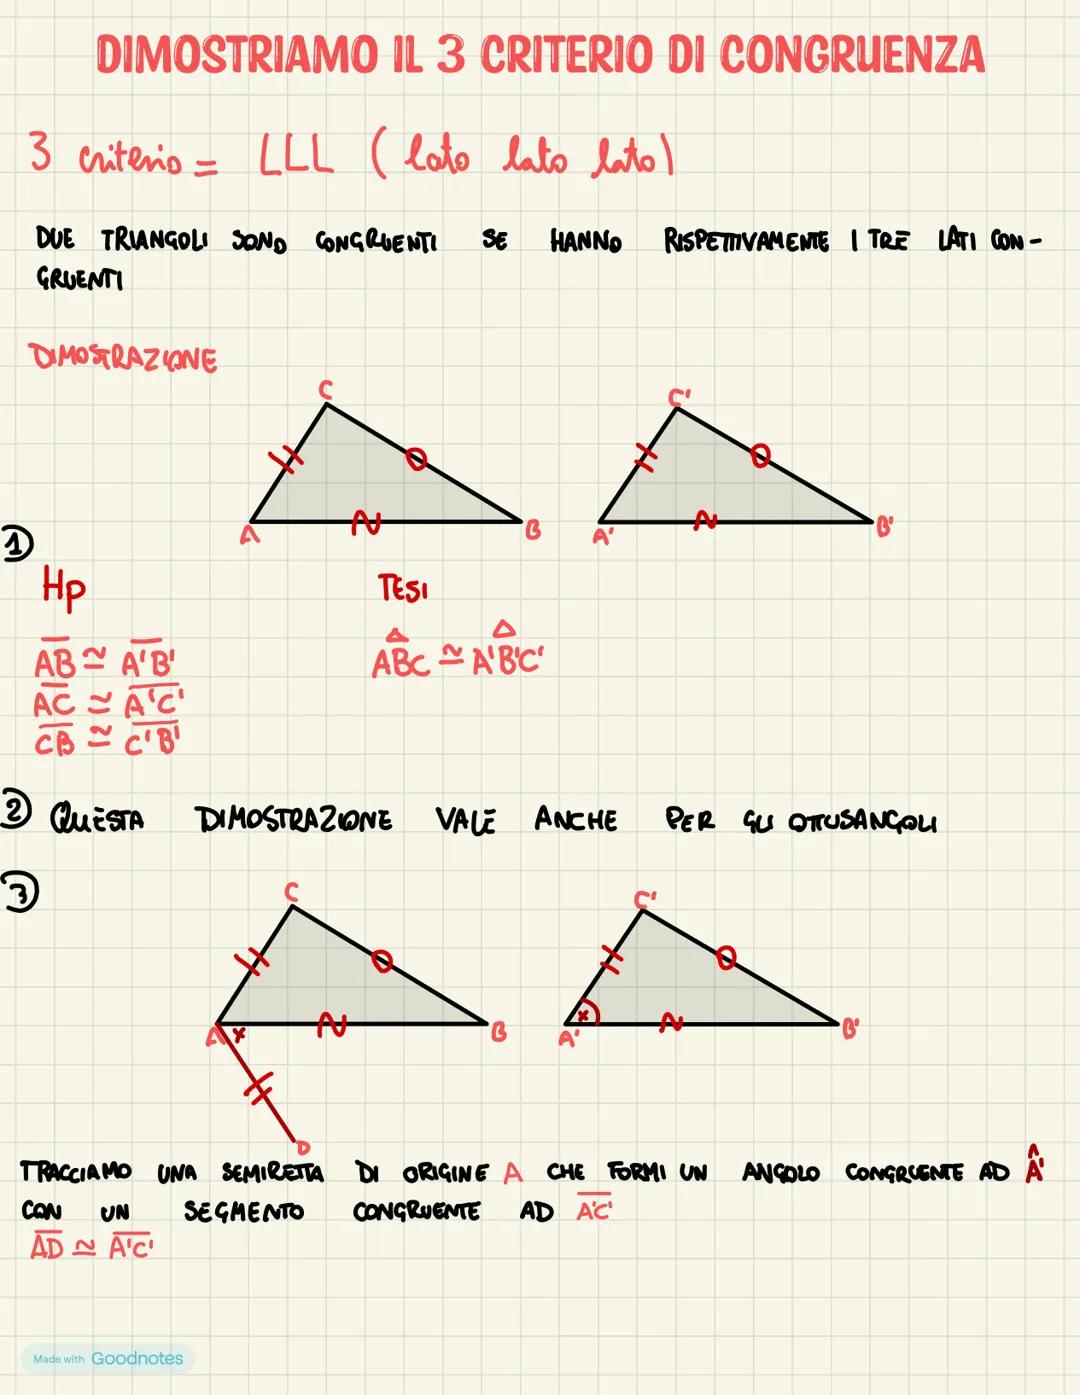 DIMOSTRIAMO IL 3 CRITERIO DI CONGRUENZA
3 criterio = LLL ( lato lato lato)
DUE TRIANGOLI SONO CONGRUENTI SE HANNO RISPETTIVAMENTE I TRE LATI CON-
GRUENTI
DIMOSTRAZIONE
C C'
A B A' B'
1
Hp TESI
AB ≅ A'B' ABC ≅ A'B'C'
AC ≅ A'C'
CB ≅ C'B'
2 QUESTA DIMOSTRAZIONE VALE ANCHE PER GLI OTTUSANGOLI
3
C C'
A x B A' x B'
D
TRACCIAMO UNA SEMIRETTA DI ORIGINE A CHE FORMI UN ANGOLO CONGRUENTE AD Â'
CON UN SEGMENTO CONGRUENTE AD A'C'
AD ≅ A'C'
Made with Goodnotes